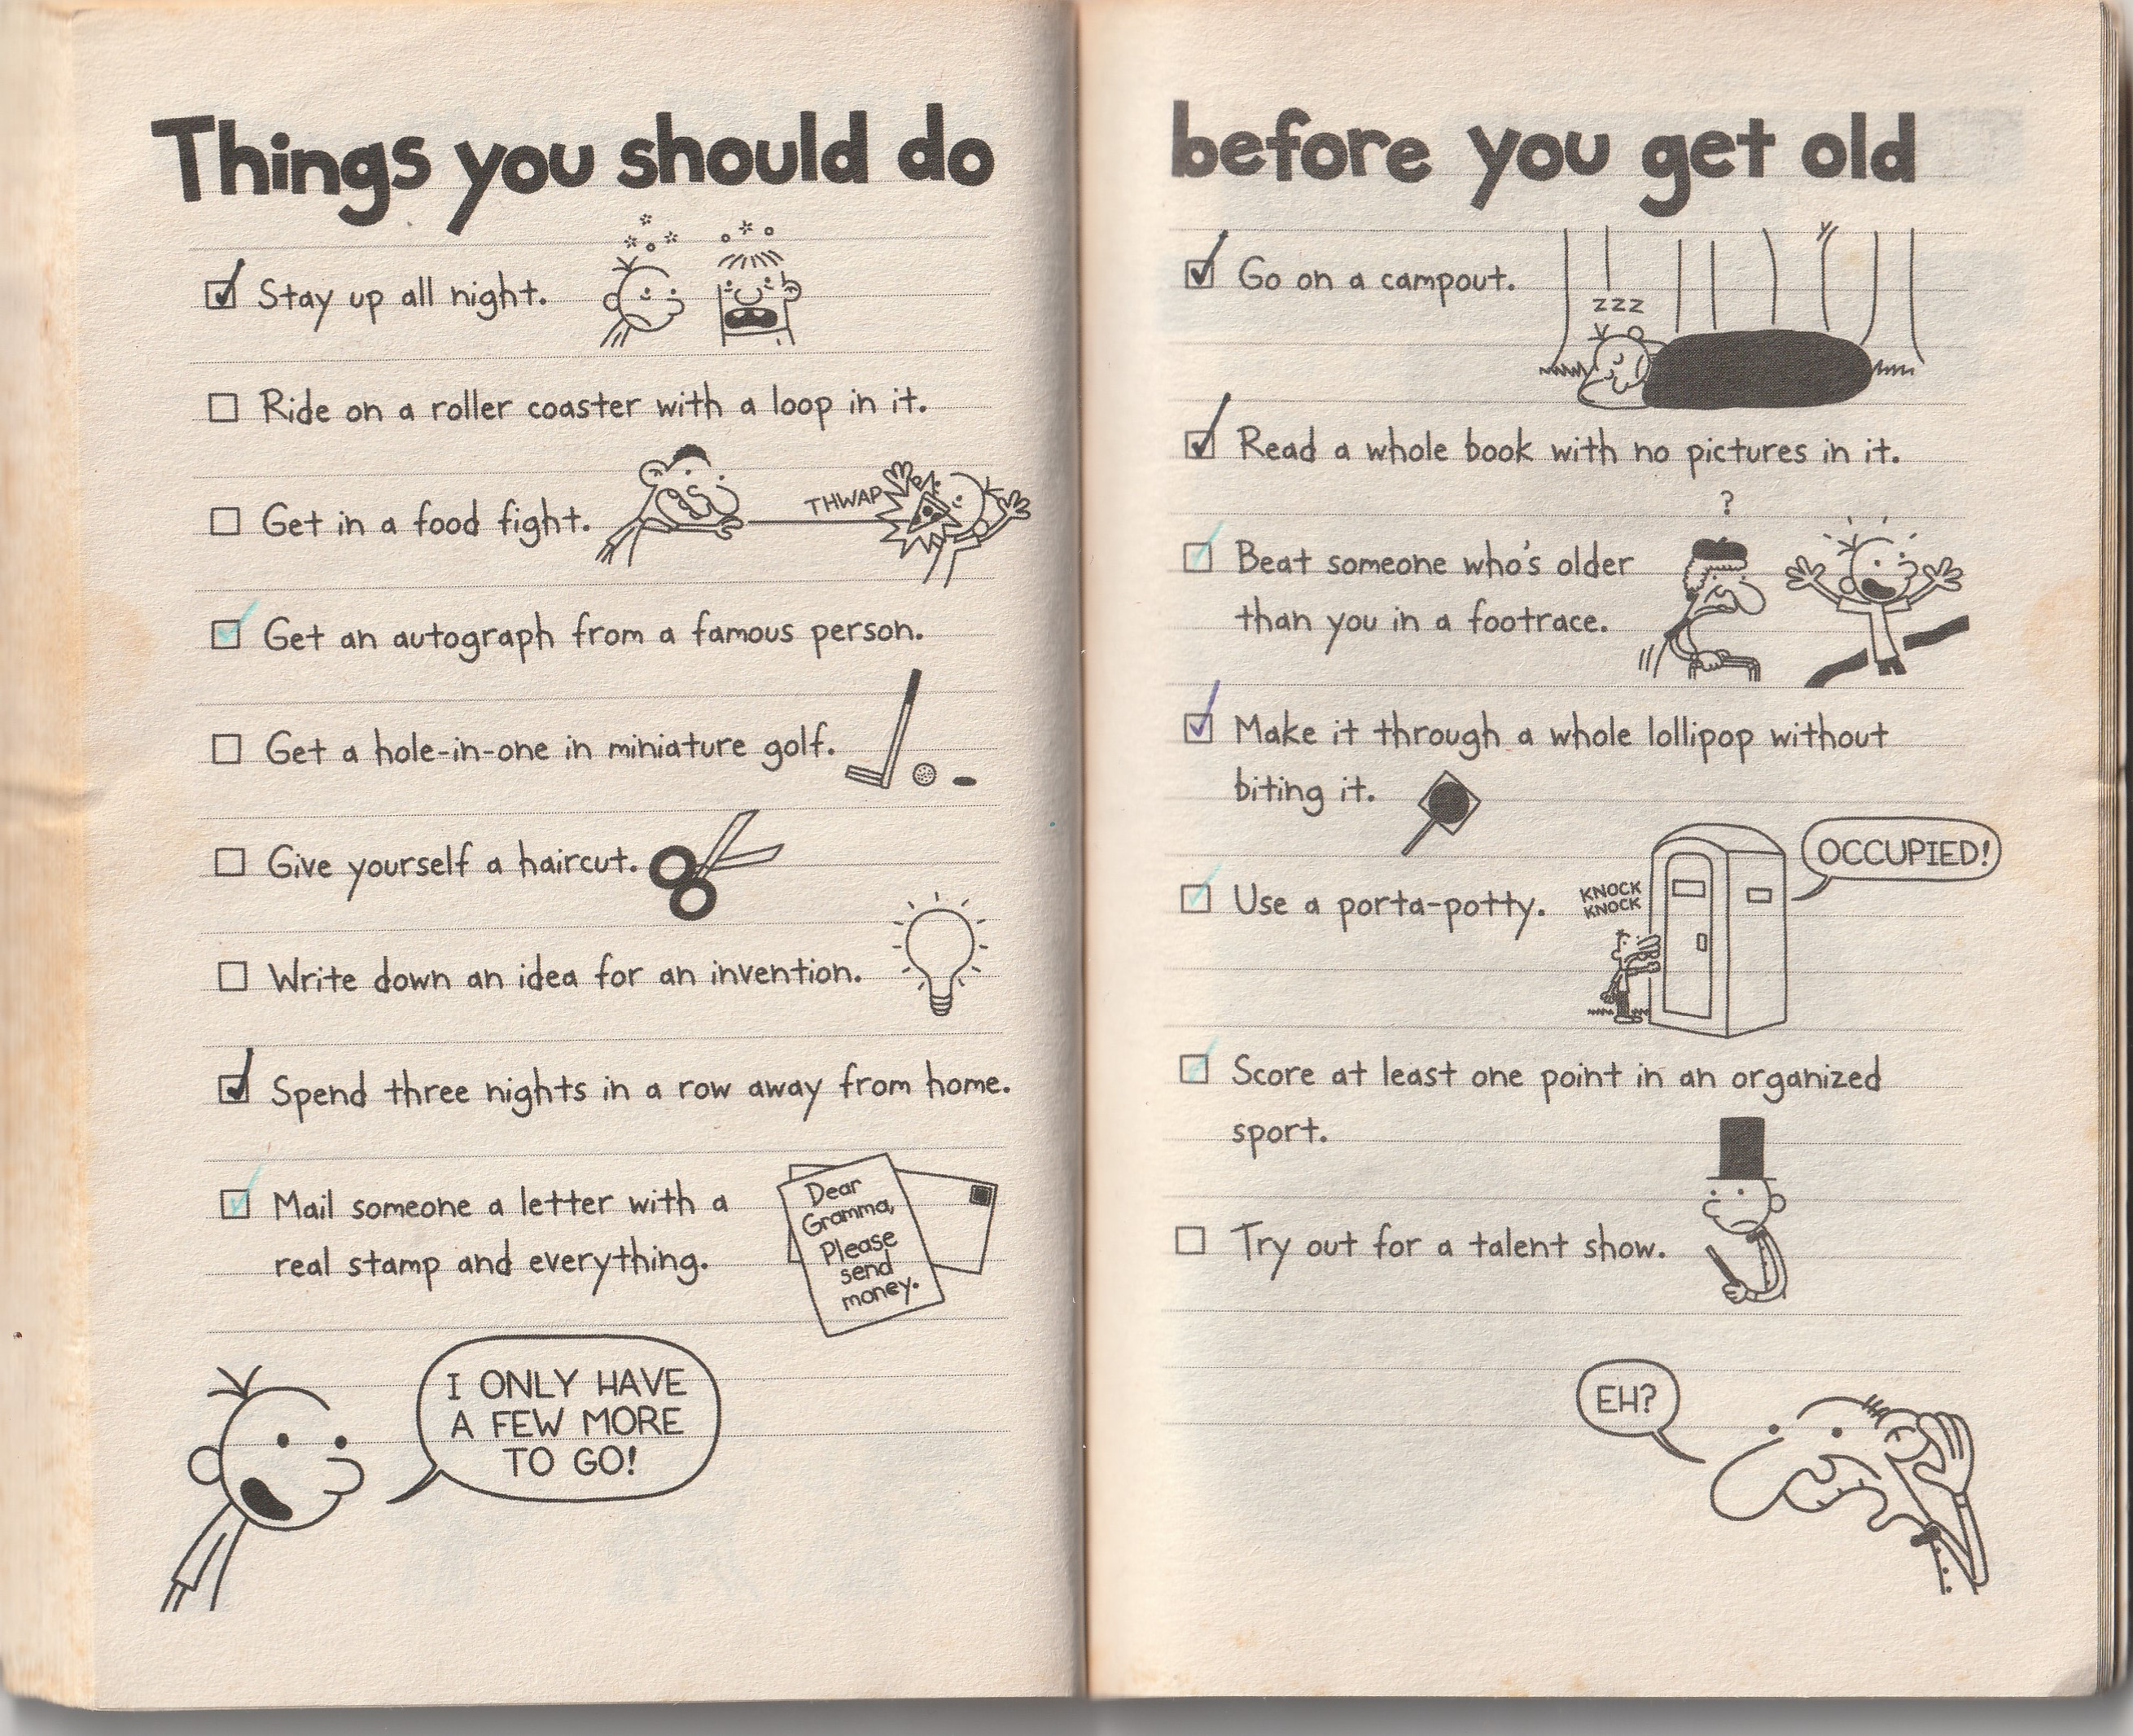 Things you should do
Stay up all night.
Ride on a roller coaster with a loop in it.
Get in a food fight.
THWAP
Get an autograph from a famous person.
Get a hole-in-one in miniature golf.
Give yourself a haircut.
Write down an idea for an invention.
Spend three nights in a row away from home.
Mail someone a letter with a
real stamp and everything.
Dear
Gramma,
Please
send
money.
I ONLY HAVE
A FEW MORE
TO GO!
before you get old
Go on a campout.
zzz
Read a whole book with no pictures in it.
?
Beat someone who's older
than you in a footrace.
Make it through a whole lollipop without
biting it.
OCCUPIED!
Use a porta-potty.
KNOCK
KNOCK
Score at least one point in an organized
sport.
Try out for a talent show.
EH?